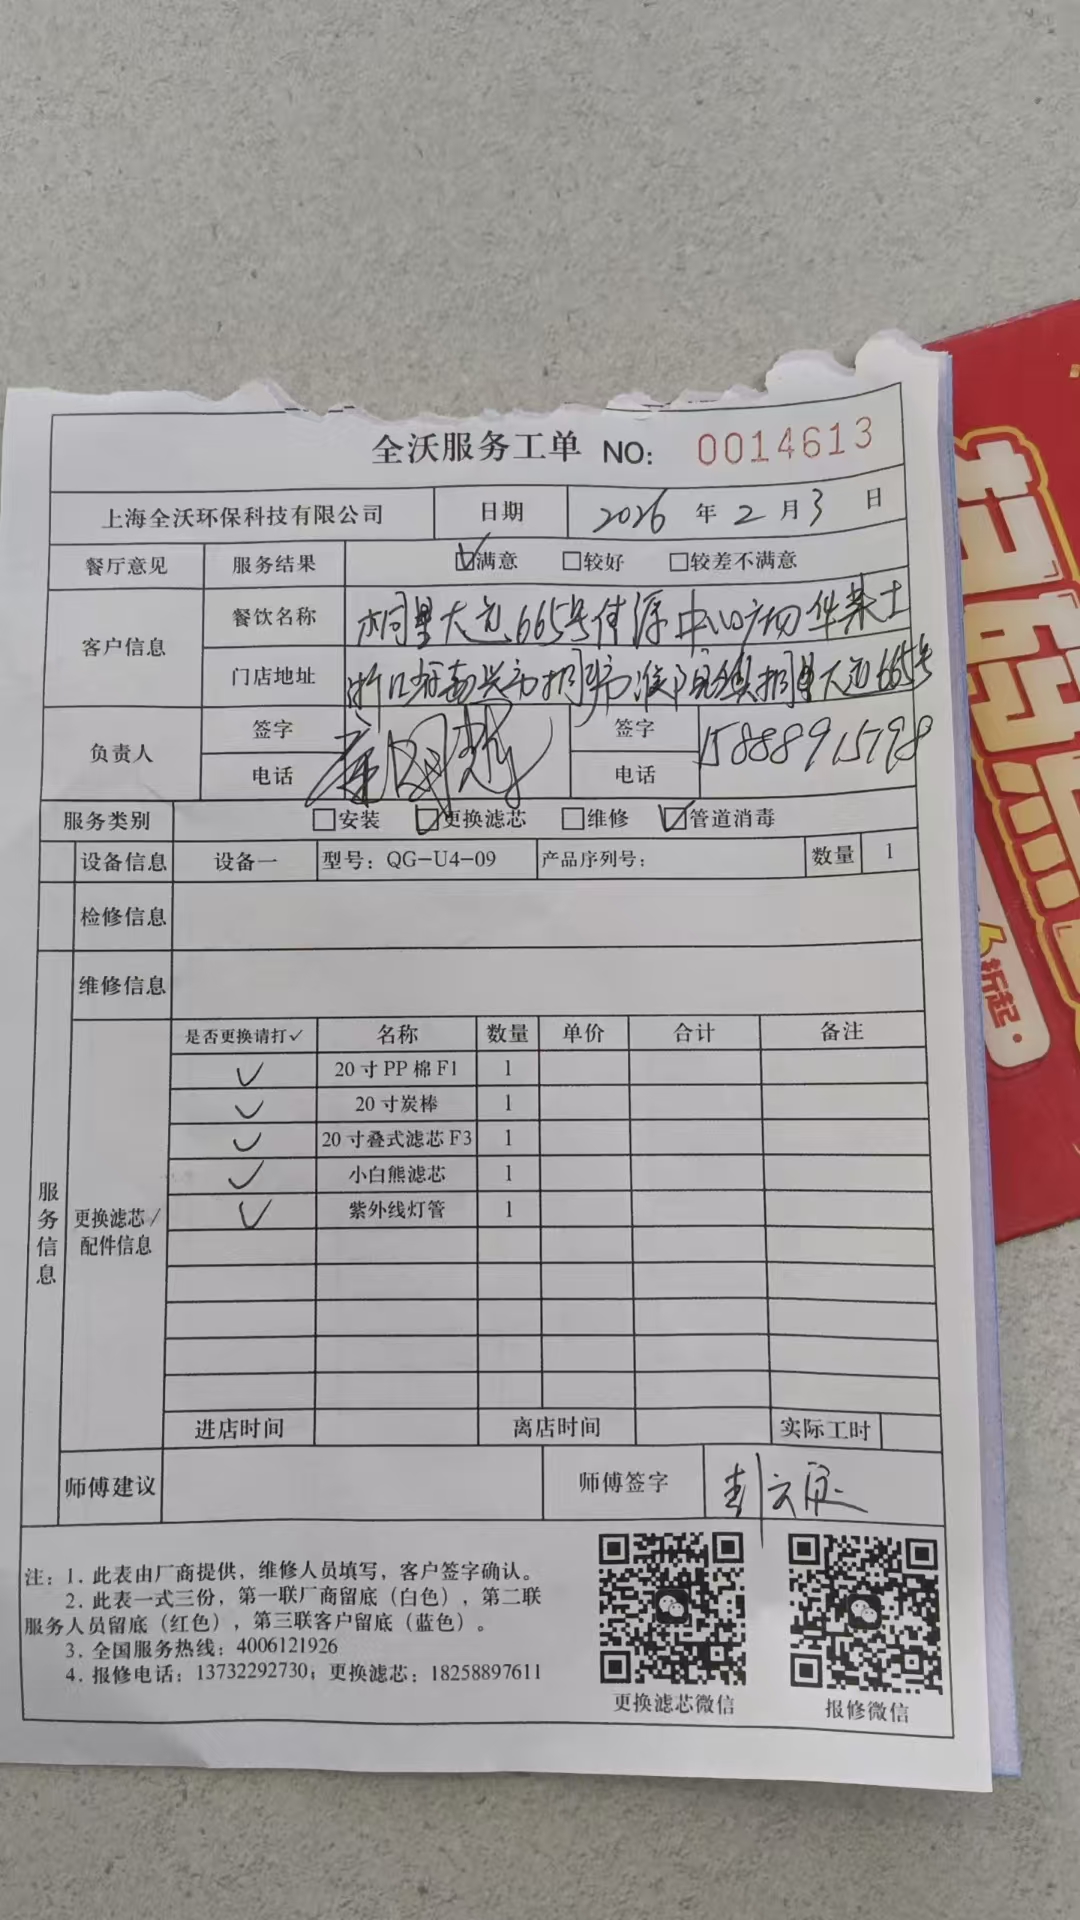 全沃服务工单 NO: 0014613
上海全沃环保科技有限公司 日期 2026 年 2 月 3 日
餐厅意见 服务结果 ☑满意 □较好 □较差不满意
客户信息 餐饮名称 桐星大道665号佳源中心广场华莱士
门店地址 浙江省嘉兴市桐乡市濮院镇桐星大道665号
负责人 签字 签字
电话 电话 15888915798
服务类别 □安装 ☑更换滤芯 □维修 ☑管道消毒
设备信息 设备一 型号：QG-U4-09 产品序列号： 数量 1
检修信息
维修信息
服务信息
更换滤芯/配件信息
是否更换请打✓ 名称 数量 单价 合计 备注
✓ 20寸PP棉F1 1
✓ 20寸炭棒 1
✓ 20寸叠式滤芯F3 1
✓ 小白熊滤芯 1
✓ 紫外线灯管 1
进店时间 离店时间 实际工时
师傅建议 师傅签字
注：1．此表由厂商提供，维修人员填写，客户签字确认。
2．此表一式三份，第一联厂商留底（白色），第二联
服务人员留底（红色），第三联客户留底（蓝色）。
3．全国服务热线：4006121926
4．报修电话：13732292730；更换滤芯：18258897611
更换滤芯微信 报修微信
折起